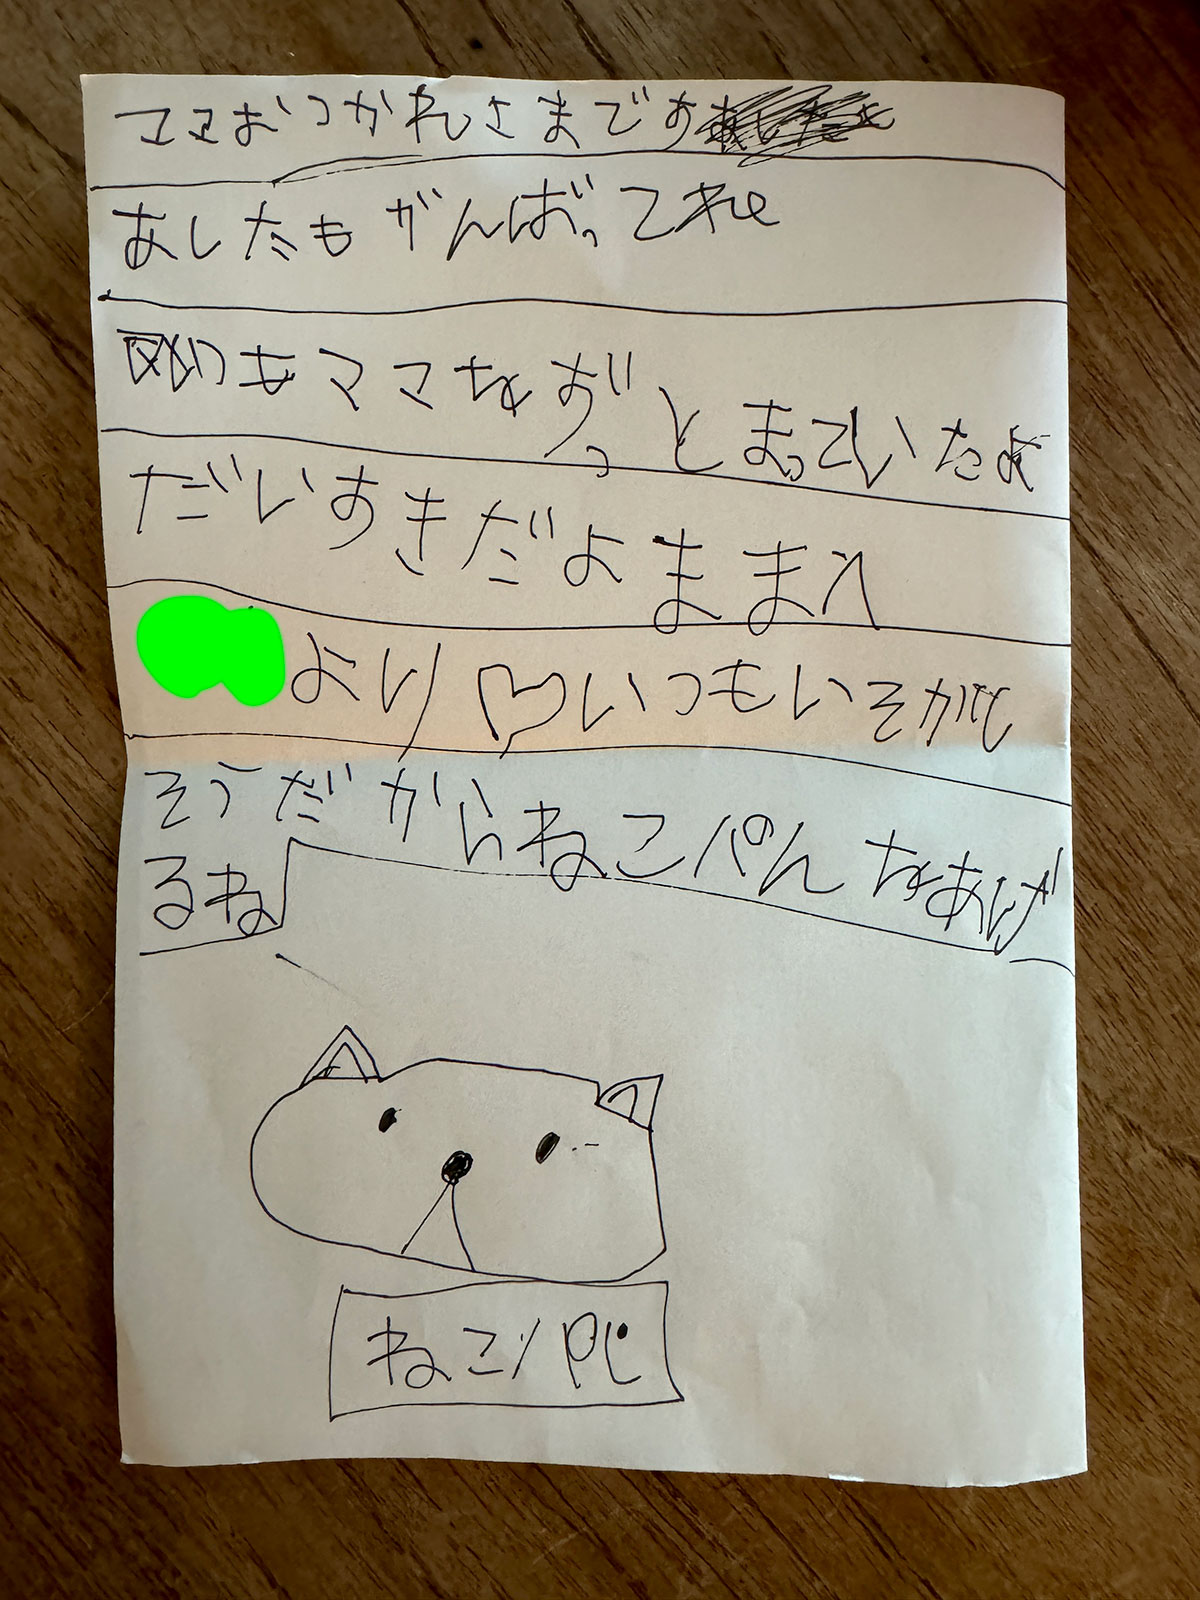 ママおつかれさまです
あしたもがんばってね
もママをずっとまっていたよ
だいすきだよままへ
より♡いつもいそがし
そうだからねこぱんをあげ
るね
ねこパン